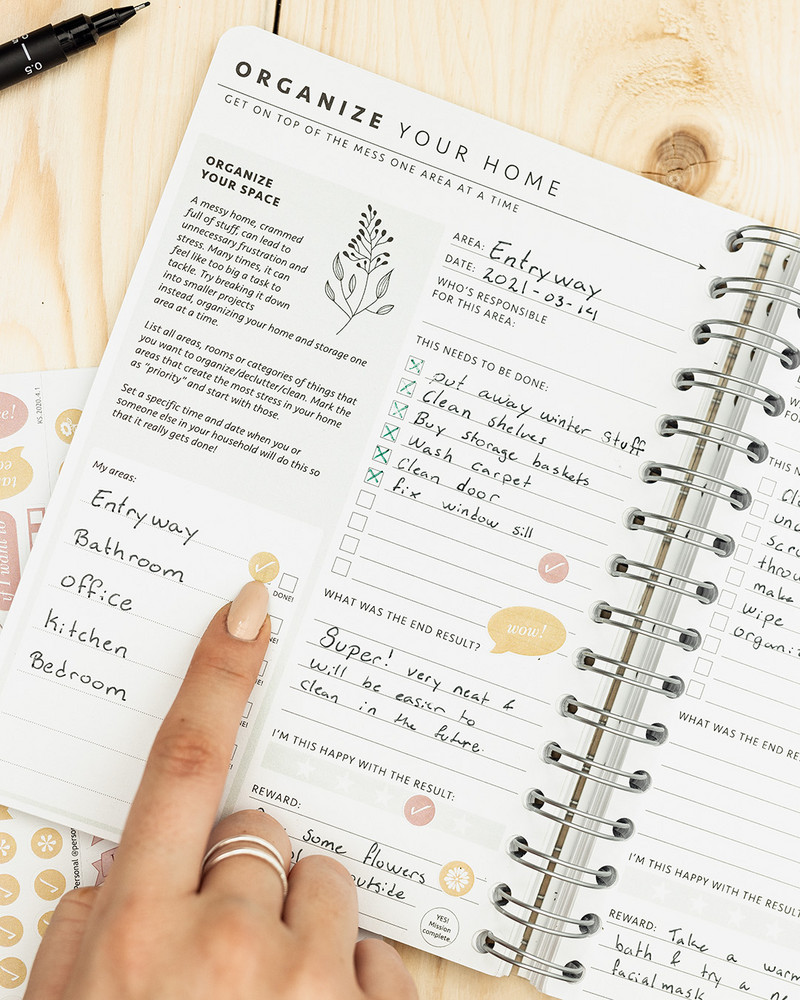 0.5
ORGANIZE YOUR HOME
GET ON TOP OF THE MESS ONE AREA AT A TIME
ORGANIZE
YOUR SPACE
A messy home, crammed
full of stuff, can lead to
unnecessary frustration and
stress. Many times, it can
feel like too big a task to
tackle. Try breaking it down
into smaller projects
instead, organizing your home and storage one
area at a time.
List all areas, rooms or categories of things that
you want to organize/declutter/clean. Mark the
areas that create the most stress in your home
as "priority" and start with those.
Set a specific time and date when you or
someone else in your household will do this so
that it really gets done!
My areas:
Entryway
Bathroom
DONE!
office
Kitchen
Bedroom
AREA: Entryway
DATE: 2021-03-14
WHO'S RESPONSIBLE
FOR THIS AREA:
THIS NEEDS TO BE DONE:
put away winter stuff
Clean shelves
Buy storage baskets
Wash carpet
Clean door
fix window sill
WHAT WAS THE END RESULT?
wow!
Super! very neat &
will be easier to
clean in the future.
I'M THIS HAPPY WITH THE RESULT:
REWARD:
some flowers
outside
YES!
Mission
complete
WHAT WAS THE END
I'M THIS HAPPY WITH THE RESULT
REWARD: Take a warm
bath & try a
facial mask
wipe
make
KS.2020.4.1
if I want to